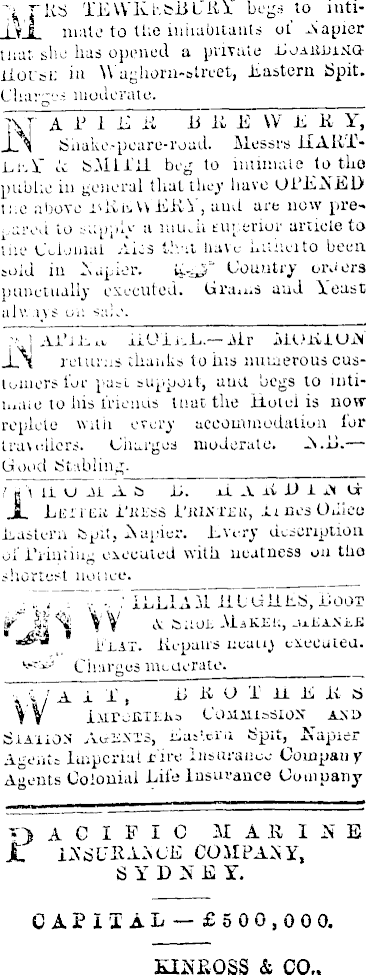 MRS TEWKESBURY begs to inti-
mate to the inhabitants of Napier
that she has opened a private BOARDING
HOUSE in Waghorn-street, Eastern Spit.
Charges moderate.
NAPIER BREWERY,
Shakespeare-road. Messrs HART-
LEY & SMITH beg to intimate to the
public in general that they have OPENED
the above BREWERY, and are now pre-
pared to supply a much superior article to
the Colonial Ales that have hitherto been
sold in Napier. Country orders
punctually executed. Grains and Yeast
always on sale.
NAPIER HOTEL.—Mr MORTON
returns thanks to his numerous cus-
tomers for past support, and begs to inti-
mate to his friends that the Hotel is now
replete with every accommodation for
travellers. Charges moderate. N.B.—
Good Stabling.
THOMAS B. HARDING
LETTER PRESS PRINTER, Times Office
Eastern Spit, Napier. Every description
of Printing executed with neatness on the
shortest notice.
WILLIAM HUGHES, BOOT
& SHOE MAKER, MEANEE
FLAT. Repairs neatly executed.
Charges moderate.
WAIT, BROTHERS
IMPORTERS COMMISSION AND
STATION AGENTS, Eastern Spit, Napier
Agents Imperial Fire Insurance Company
Agents Colonial Life Insurance Company
PACIFIC MARINE
INSURANCE COMPANY,
SYDNEY.
CAPITAL—£500,000.
KINROSS & CO.,